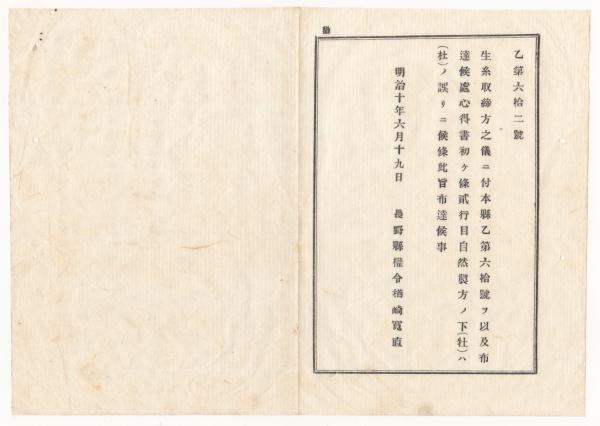 乙第六拾二號
生糸取締方之儀ニ付本縣乙第六拾號ヲ以及布
達候處心得書初ケ條貳行目自然製方ノ下(牡)ハ
(杜)ノ誤リニ候條此旨布達候事
明治十年六月十九日 長野縣權令楢崎寛直